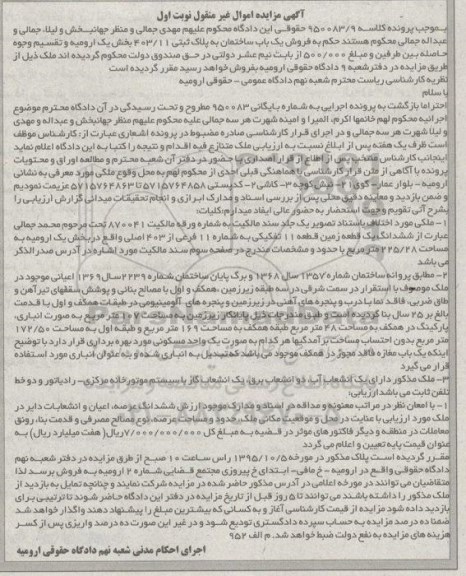 آگهی مزایده اموال غیر منقول نوبت اول
بموجب پرونده کلاسه ۹۵۰۰۸۳/۹ حقوقی این دادگاه محکوم علیهم مهدی جمالی و منظر جهانبخش و لیلا، جمالی و
عبداله جمالی محکوم هستند حکم به فروش یک باب ساختمان به پلاک ثبتی ۴۰۳/۱۱ بخش یک ارومیه و تقسیم وجوه
حاصله بین طرفین و مبلغ ۵۰۰/۰۰۰ بابت نیم عشر دولتی در حق صندوق دولت محکوم گردیده اند ملک ذیل از
طریق مزایده در دفتر شعبه ۹ دادگاه حقوقی ارومیه بفروش خواهد رسید مقرر گردیده است
نظریه کارشناسی ریاست محترم شعبه نهم دادگاه عمومی - حقوقی ارومیه
با سلام
احتراما بازگشت به پرونده اجرایی به شماره بایگانی ۹۵۰۰۸۳ مطروح و تحت رسیدگی در آن دادگاه محترم موضوع
اجرائیه محکوم لهم خانمها اکرم، المیرا و امینه شهرت هر سه جمالی علیه محکوم علیهم منظر جهانبخش و عبداله و مهدی
و لیلا شهرت هر سه جمالی و در اجرای قرار کارشناسی صادره مضبوط در پرونده اشعاری عبارت از: کارشناس موظف
است ظرف یک هفته پس از ابلاغ نسبت به ارزیابی ملک متنازع فیه اقدام و نتیجه را کتبا به این دادگاه اعلام نماید
اینجانب کارشناس منتخب پس از اطلاع از قرار اصداری با حضور در دفتر آن شعبه محترم و مطالعه اوراق و محتویات
پرونده با آگاهی از متن قرار کارشناسی با هماهنگی قبلی احدی از محکوم لهم به محل وقوع ملکی مورد معرفی به نشانی
ارومیه - بلوار عمار - کوی ۱۱ - نبش کوچه ۳- کاشی ۲- کدپستی ۵۷۱۵۷۶۴۸۵۸ تا ۵۷۱۵۷۶۴۸۶۳ عزیمت نمودیم
و ضمن بازدید و معاینه دقیق محلی پس از بررسی اسناد و مدارک ابرازی و انجام تحقیقات میدانی گزارش ارزیابی را
بشرح آتی تقویم و جهت استحضار به حضور عالی ایفاد میدارم: کلیات:
۱- ملکی مورد اختلاف باستناد تصویر یک جلد سند مالکیت به شماره ورقه مالکیت ۸۷۰۰۴۱ تحت مرحوم محمد جمالی
عبارت از ششدانگ یک قطعه زمین قطعه ۱۱ تفکیکی به شماره ۱۱ فرعی از ۴۰۳ اصلی واقع در بخش یک ارومیه به
مساحت ۲۲۵/۲۸ متر مربع با حدود و مشخصات مندرج در صفحه سوم سند مالکیت مورد اشاره در آدرس صدر الذکر
می باشد
۲- مطابق پروانه ساختمان شماره ۱۳۵۷ سال ۱۳۶۸ و برگ پایان ساختمان شماره ۲۲۳۹ سال ۱۳۶۹ اعیانی موجود در
ملک موصوف با استقرار در سمت شرقی در سه طبقه زیرزمین ،همکف و اول با مصالح بنائی و پوشش سقفهای تیرآهن و
طاق ضربی، فاقد نما با درب و پنجره های آهنی در زیرزمین و پنجره های آلومینیومی در طبقات همکف و اول با قدمت
بالغ بر ۲۵ سال بنا گردیده است و طبق مندرجات ذیل پایانکار زیرزمین به مساحت ۱۰۷ متر مربع به صورت انباری،
پارکینگ در همکف به مساحت ۴۸ متر مربع طبقه همکف به مساحت ۱۶۹ متر مربع و طبقه اول به مساحت ۱۷۲/۵۰
متر مربع بدون احتساب مساحت برآمدگیها هر کدام به صورت یک واحد مسکونی مورد بهره برداری قرار دارد با توضیح
اینکه یک باب مغازه فاقد مجوز در همکف موجود می باشد که تبدیل به انباری شده و بنه عنوان انباری مورد استفاده
قرار می گیرد
۳- ملک مذکور دارای یک انشعاب آب، دو انشعاب برق، یک انشعاب گاز با سیستم موتورخانه مرکزی- رادیاتور و دو خط
تلفن ثابت می باشد ارزیابی:
۱- با امعان نظر در مراتب معنونه و مداقه در اسناد و مدارک موجود ارزش ششدانگ عرصه، اعیان و انشعابات دایر در
ملک مورد ارزیابی با عنایت در محل و موقعیت مکانی ملک، حدود و مساحت عرصه، نوع مصالح مصرفی و قدمت بنا، رونق
معاملات در منطقه و دیگر فاکتورهای موثر در قضیه به مبلغ کل ۷/۰۰۰/۰۰۰/۰۰۰ ریال( هفت میلیارد ریال) به
عنوان قیمت پایه تعیین و اعلام می گردد
مقرر گردیده است پلاک مذکور در مورخه ۱۳۹۵/۱۰/۵ راس ساعت ۱۰ صبح از طرق مزایده در دفتر شعبه نهم
دادگاه حقوقی واقع در ارومیه - خ مافی- ابتدای خ پیروزی مجتمع قضایی شماره ۲ ارومیه به فروش برسد لذا
متقاضیان می توانند در مورخه اعلامی در آدرس مذکور حاضر شده در مزایده شرکت نمایند و چنانچه تمایل به بازدید از
ملک مذکور را داشته باشند می توانند تا ۵ روز قبل از تاریخ مزایده در دفتر این دادگاه حاضر شوند تا ترتیبی برای
بازدید داده شود مزایده از قیمت کارشناسی آغاز و به کسانی که بیشترین مبلغ را پیشنهاد دهند واگذار خواهد شد
ضمنا ده درصد مزایده به حساب سپرده دادگستری تودیع شود و در غیر این صورت ده درصد واریزی پس از کسر
هزینه های مزایده به نفع دولت ضبط خواهد شد. م الف ۹۵۲
اجرای احکام مدنی شعبه نهم دادگاه حقوقی ارومیه